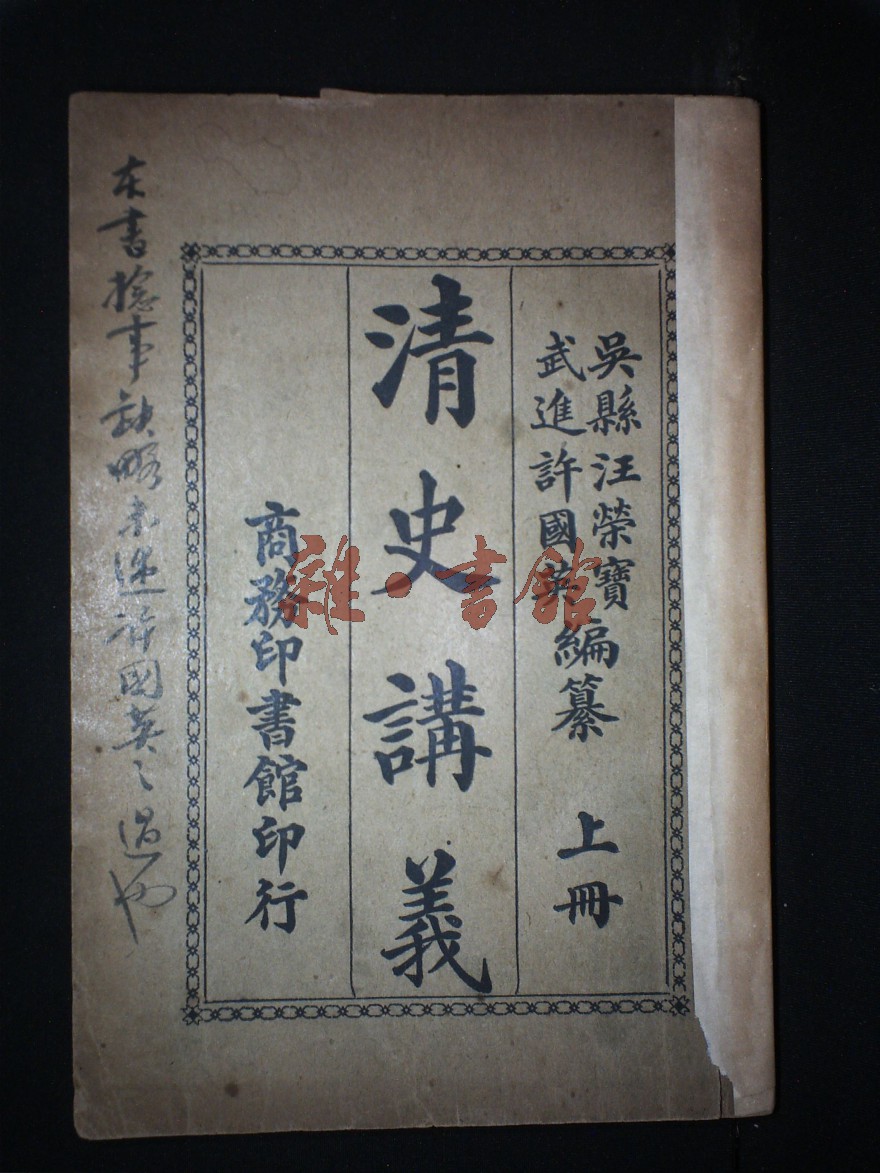 吳縣汪榮寶
武進許國英編纂 上冊
清史講義
商務印書館印行
本書捻事缺略許國英之過也
雜·書館